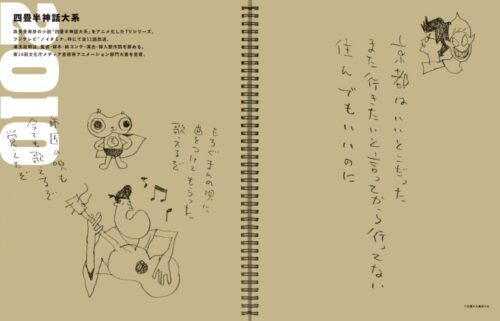 四畳半神話大系
森見登美彦の小説「四畳半神話大系」をアニメ化したTVシリーズ。
フジテレビ「ノイタミナ」枠にて全11話放送。
湯浅政明は、監督・脚本・絵コンテ・演出・挿入歌作詞を務める。
第14回文化庁メディア芸術祭アニメーション部門大賞を受賞。
2010
京都はいいとこだった
また行きたいと言ってから行ってない
住んでもいいのに
もちぐまんの唄に
曲をつけてもらった
歌えるぞ
の唄も
今でも歌てるぞ
覚えたぞ
©四畳半主義者の会